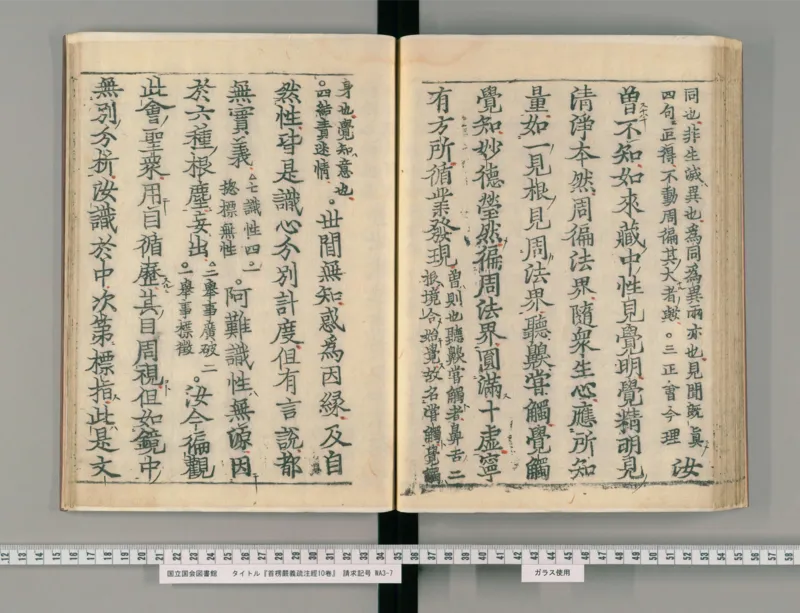 同也非生滅異也為同為異兩亦也見聞既眞
四句叵得不動周徧其大者歟。三正會今理
汝
曽不知如來藏中性見覺明覺精明見
清淨本然周徧法界隨衆生心應所知
量如一見根見周法界聽齅甞觸覺觸
覺知妙德瑩然徧周法界圓滿十虛寧
有方所循業發現
曽則也聽齅甞觸者鼻舌二
根境合始覺故名甞觸覺觸
身也覺知意也
。四結責迷情
。世間無知惑為因緣及自
然性皆是識心分別計度但有言說都
無實義
。七識性四。一
摠標無性
。阿難識性無源因
於六種根塵妄出
。二舉事廣破二
。一舉事標徵
。汝今徧觀
此會聖衆用目循歷其目周視但如鏡中
無別分析汝識於中次第標指此是文
12 13 14 15 16 17 18 19 20 21 22 23 24 25 26 27 28 29 30 31 32 33 34 35 36 37 38 39 40 41 42 43 44 45 46 47 48 49 50 51 52 53 54 55 56 57 58
国立国会図書館 タイトル『首楞嚴義疏注經10巻』 請求記号 WA3-7
ガラス使用